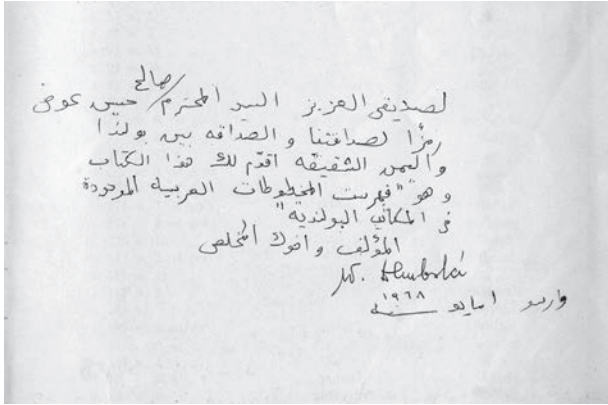 صالح
لصديقى العزيز السيد المحترم / حسين عوض
رمزًا لصداقتنا و الصداقه بين بولندا
واليمن الشقيقه اقدّم لك هذا الكتاب
و هو "فهرست المخطوطات العربيه الموجودة
فى المكاتب البولندية"
المؤلف و اخوك المخلص
W. Dembski
وارسو ١ مايو سنة ١٩٦٨